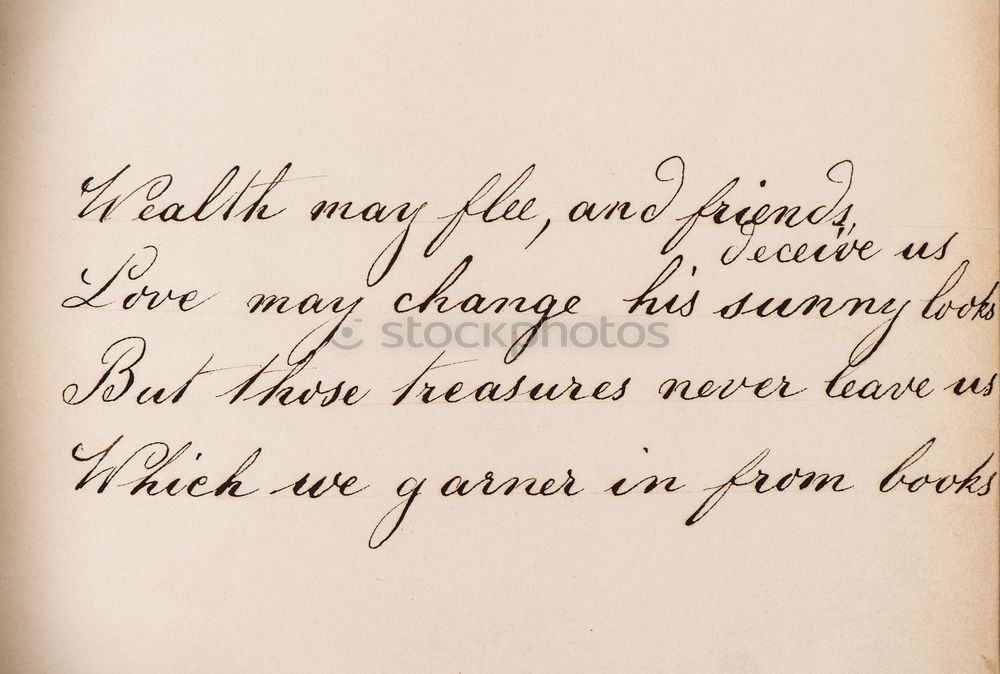 Wealth may flee, and friends
deceive us
Love may change his sunny looks
stockphotos
But those treasures never leave us
Which we garner in from books